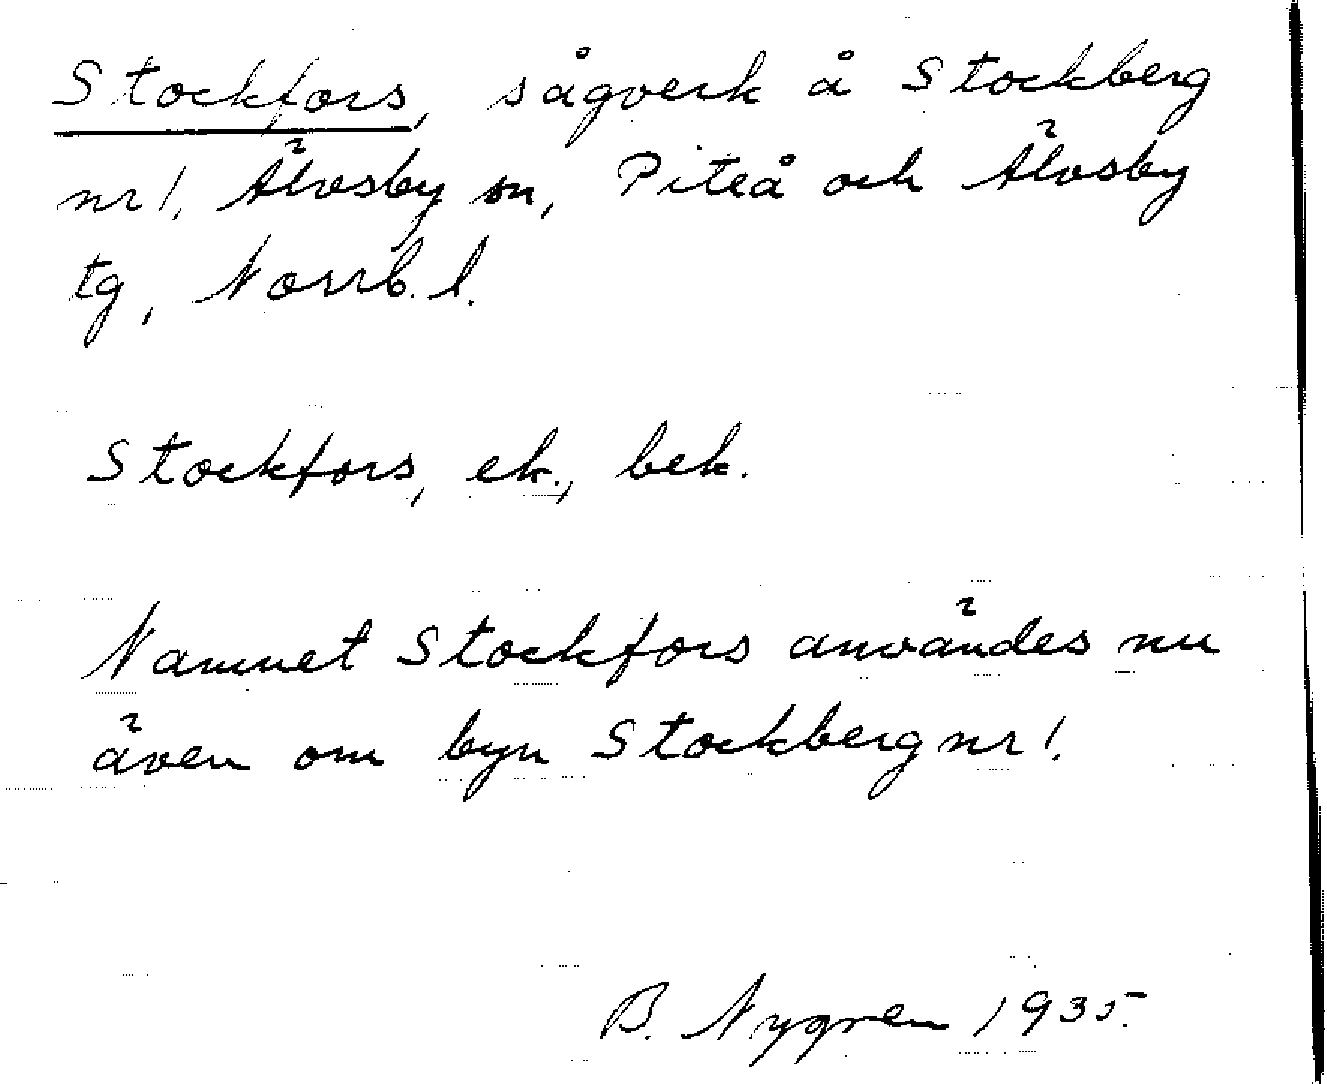 Stockfors, sågverk å Stockberg
nr 1, Älvsby sn, Piteå och Älvsby
tg, Norrb. l.
Stockfors, ek., bek.
Namnet Stockfors användes nu
även om byn Stockberg nr 1.
B. Nygren 1935.